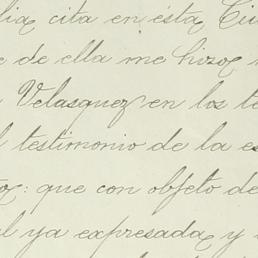 cita en ésta Ciu
de ella me hizo
Velasquez en los té
testimonio de la es
: que con objeto de
ya expresada, y